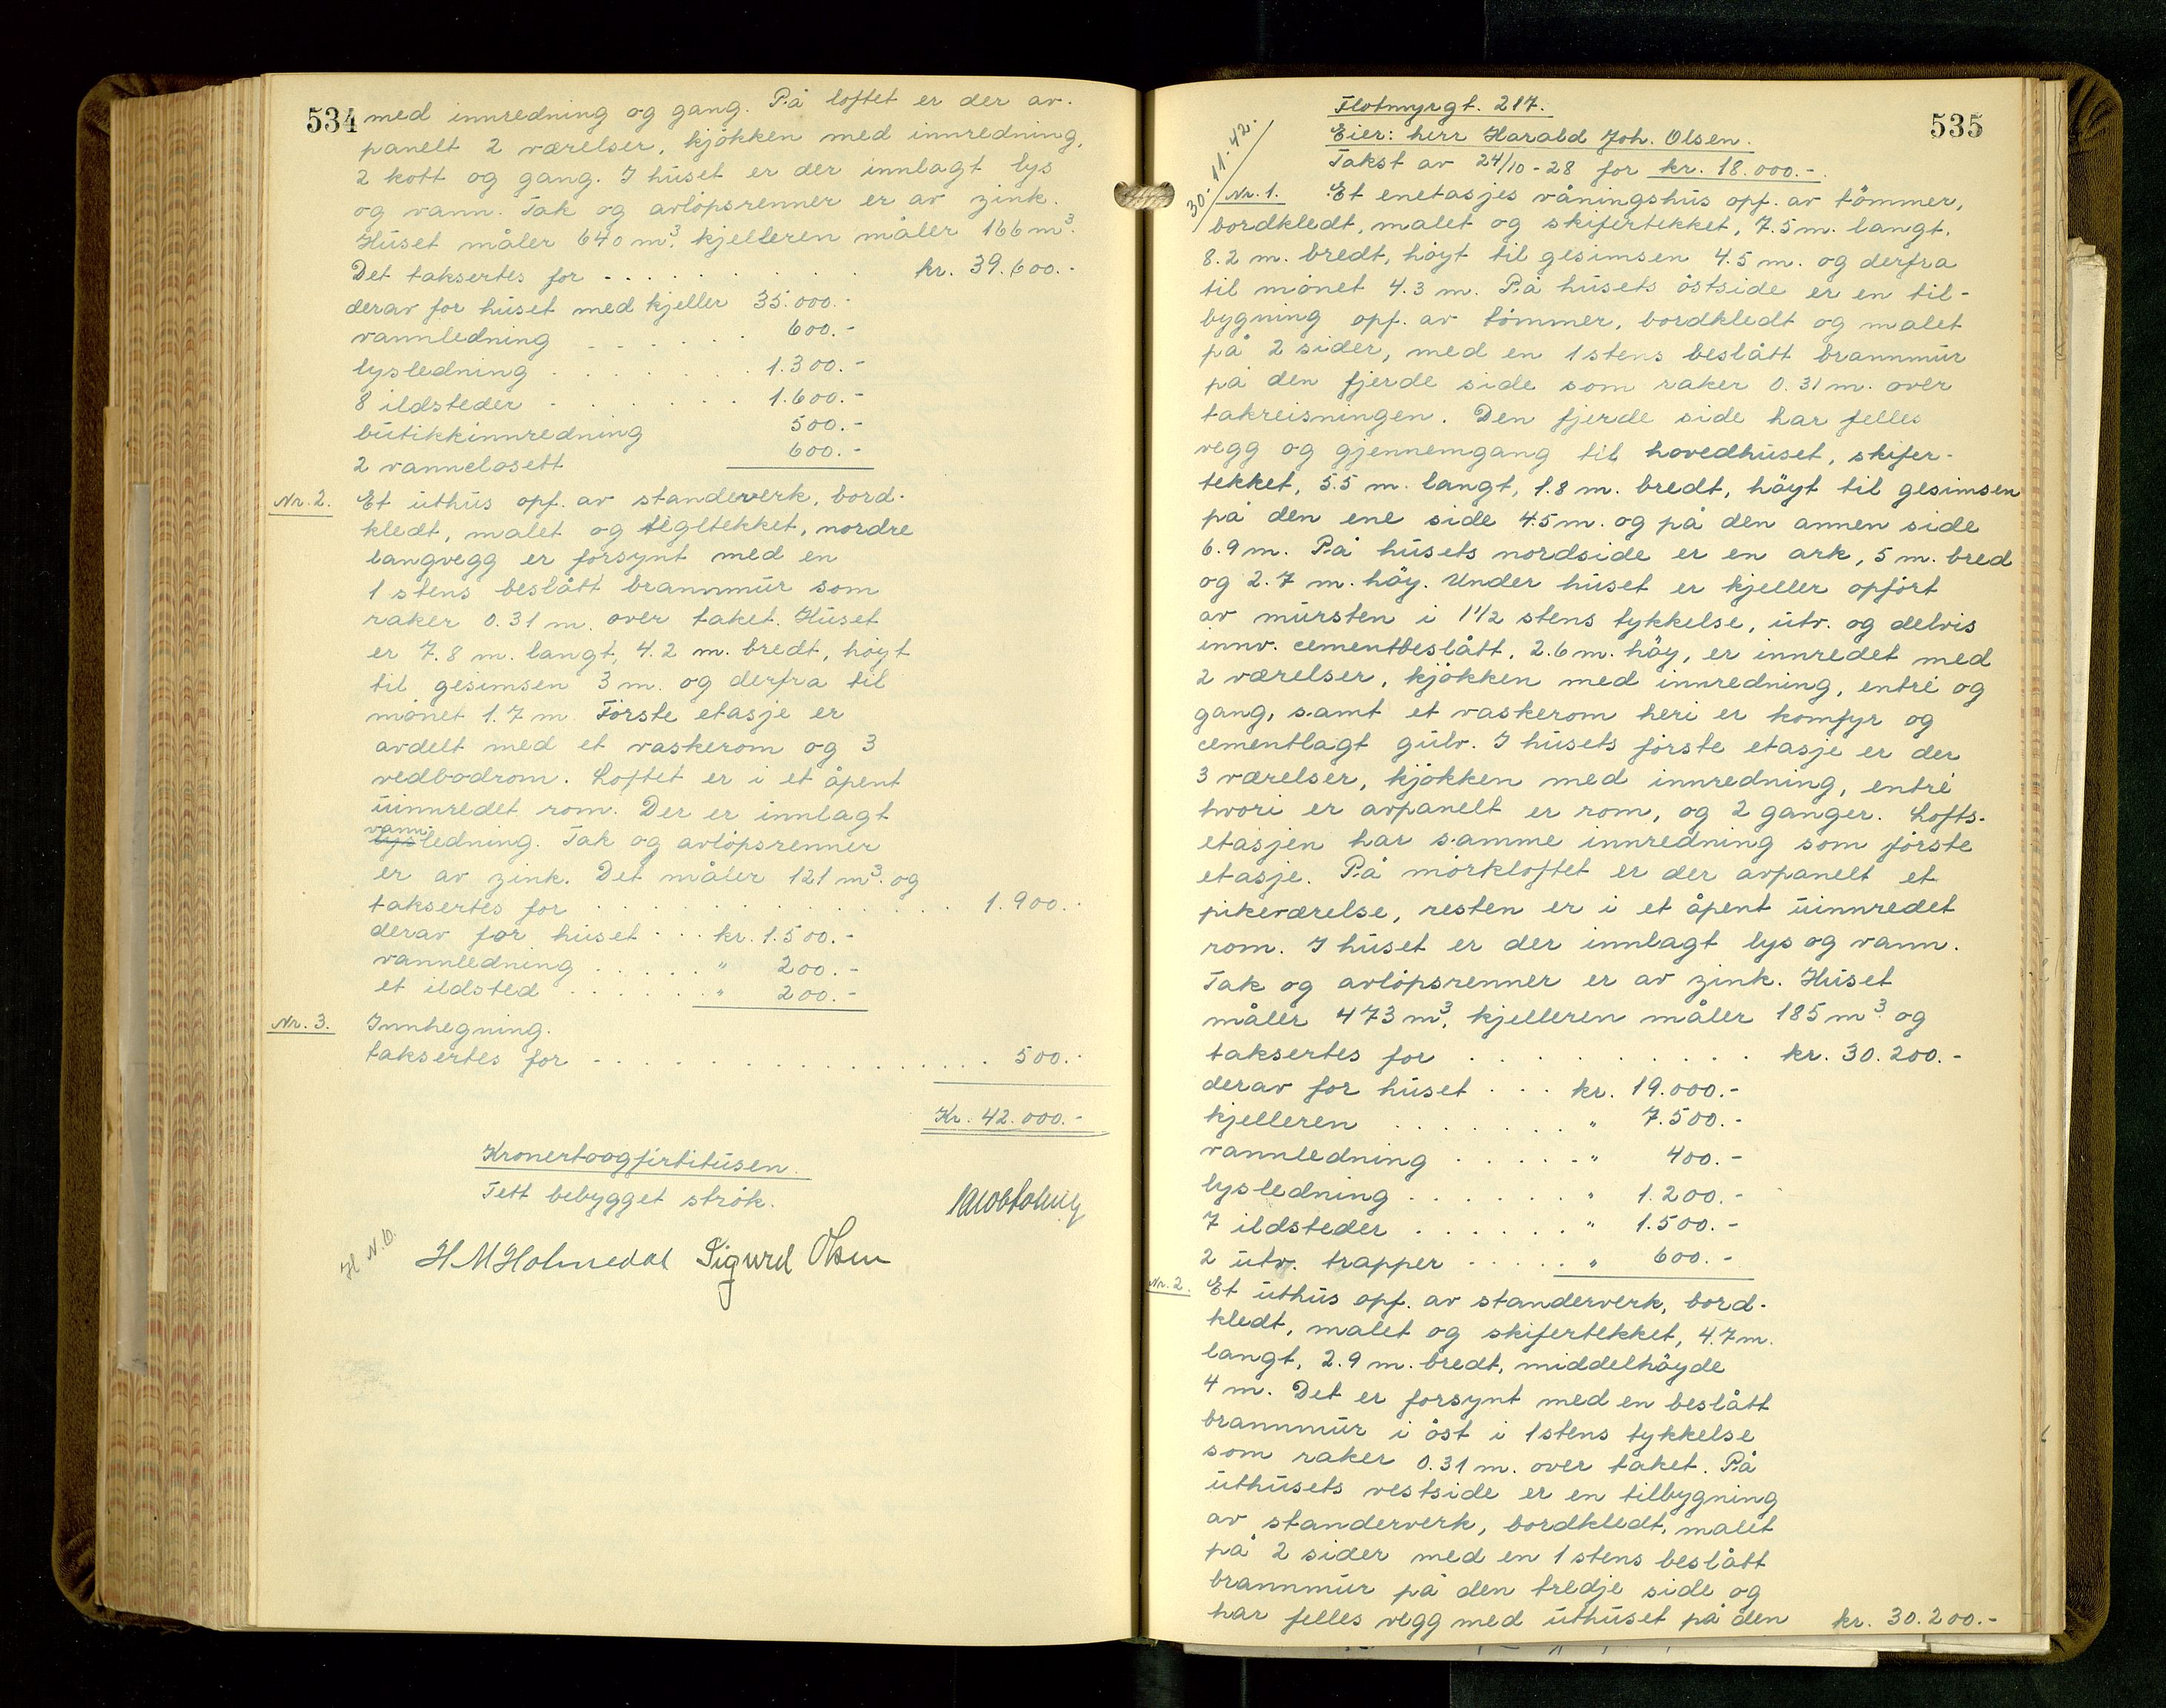 534
med innredning og gang. På loftet er der av-
panelt 2 værelser, kjökken med innredning,
2 kott og gang. I huset er der innlagt lys
og vann. Tak og avlöpsrenner er av zink.
Huset måler 640 m³, kjelleren måler 166 m³.
Det taksertes for - . . . . . . . kr. 39.600.-
derav for huset med kjeller 35.000.-
vannledning - - . . . . 600.-
lysledning . . . . . . . 1.300.-
8 ildsteder - . . . . . . 1.600.-
butikkinnredning 500.-
2 vannclosett 600.-
Nr. 2. Et uthus opf. av standerverk, bord-
kledt, malet og tegltekket, nordre
langvegg er forsynt med en
1 stens beslått brannmur som
raker 0.31 m. over taket. Huset
er 7.8 m. langt, 4.2 m. bredt, höyt
til gesimsen 3 m. og derfra til
mönet 1.7 m. Förste etasje er
avdelt med et vaskerom og 3
vedbodrom. Loftet er i et åpent
uinnredet rom. Der er innlagt
vann-
lysledning. Tak og avlöpsrenner
er av zink. Det måler 121 m³. og
taksertes for . . . . . . . . . . . 1.900.-
derav for huset . . . kr. 1.500.-
vannledning . . . . . " 200.-
et ildsted . . . . . . " 200.-
Nr. 3. Innhegning.
taksertes for - . . . . . . . . . . . 500.-
Kr. 42.000.-
Kronertoogfirtitusen.
Tett bebygget strök.
H. N. O.
H M Holmedal Sigurd Olsen
535
Flotmyrgt. 217.
Eier: herr Harald Joh. Olsen.
Takst av 24/10-28 for kr. 18.000.-
30.11.42.
Nr. 1. Et enetasjes våningshus opf. av tömmer,
bordkledt, malet og skifertekket, 7.5 m. langt,
8.2 m. bredt, höyt til gesimsen 4.5 m. og derfra
til mönet 4.3 m. På husets östside er en til-
bygning opf. av tömmer, bordkledt og malet
på 2 sider, med en 1 stens beslått brannmur
på den fjerde side som raker 0.31 m. over
takreisningen. Den fjerde side har felles
vegg og gjennemgang til hovedhuset, skifer-
tekket, 5.5 m. langt, 1.8 m. bredt, höyt til gesimsen
på den ene side 4.5 m. og på den annen side
6.9 m. På husets nordside er en ark, 5 m. bred
og 2.7 m. höy. Under huset er kjeller opfört
av mursten i 1 1/2 stens tykkelse, utv. og delvis
innv. cementbeslått, 2.6 m. höy, er innredet med
2 værelser, kjökken med innredning, entré og
gang, samt et vaskerom heri er komfyr og
cementlagt gulv. I husets förste etasje er der
3 værelser, kjökken med innredning, entré
hvori er avpanelt er rom, og 2 ganger. Lofts-
etasjen har samme innredning som förste
etasje. På mörkloftet er der avpanelt et
pikeværelse, resten er i et åpent uinnredet
rom. I huset er der innlagt lys og vann.
Tak og avlöpsrenner er av zink. Huset
måler 473 m³, kjelleren måler 185 m³. og
taksertes for . . . . . . . . . kr. 30.200.-
derav for huset . . . kr. 19.000.-
kjelleren . . . . . . . " 7.500.-
vannledning . . . . . - " 400.-
lysledning . . . . . . . " 1.200.-
7 ildsteder . . . . . . . " 1.500.-
2 utv. trapper . . . . . " 600.-
Nr. 2. Et uthus opf. av standerverk, bord-
kledt, malet og skifertekket, 4.7 m.
langt, 2.9 m. bredt, middelhöyde
4 m. Det er forsynt med en beslått
brannmur i öst i 1 stens tykkelse
som raker 0.31 m. over taket. På
uthusets vestside er en tilbygning
av standerverk, bordkledt, malet
på 2 sider med en 1 stens beslått
brannmur på den tredje side og
har felles vegg med uthuset på den kr. 30.200.-